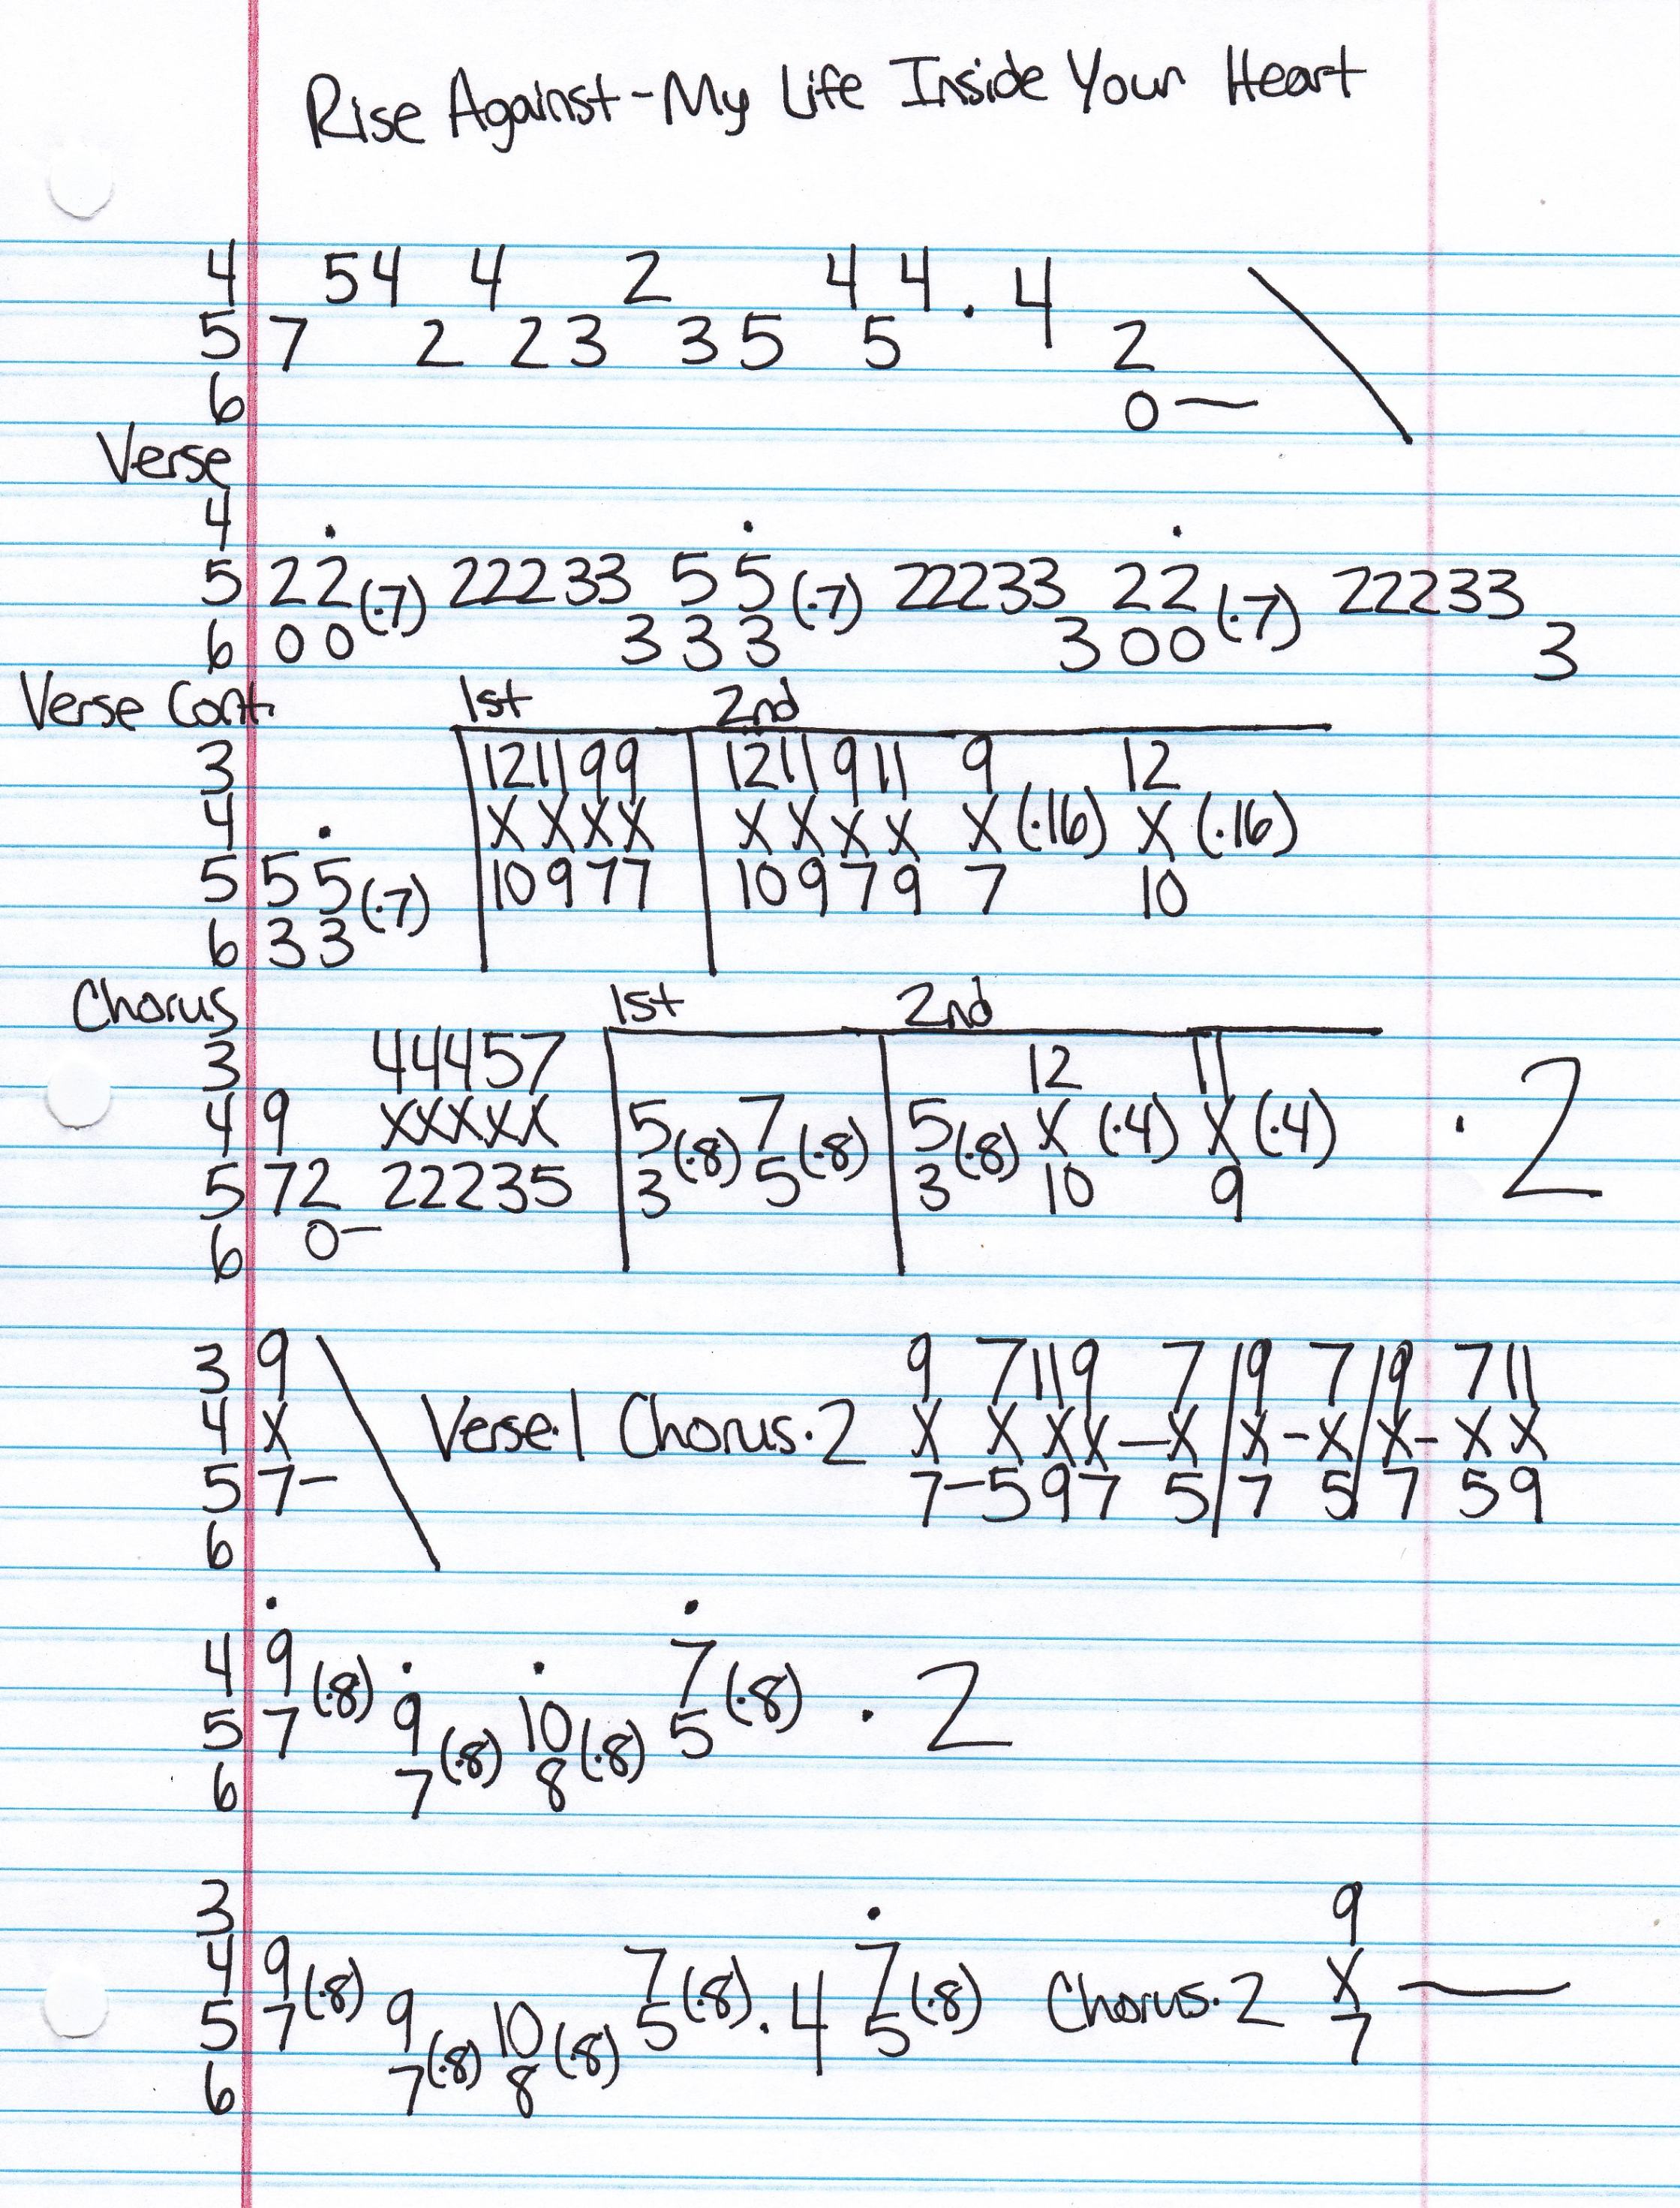 Rise Against - My Life Inside Your Heart
4 54 4 2 4 4 . 4
5 7 2 2 3 3 5 5 2
6 0 —
Verse
4 . . .
5 2 2 (·7) 22233 5 5 (·7) 22233 2 2 (·7) 22233
6 0 0 3 3 3 3 0 0 3
Verse Cont. 1st 2nd
3 12 11 9 9 12 11 9 11 9 12
4 . X X X X X X X X X (·16) X (·16)
5 5 5 (·7) 10 9 7 7 10 9 7 9 7 10
6 3 3
Chorus 1st 2nd
3 4 4 4 5 7 12 11
4 9 X X X X X 5 (·8) 7 (·8) 5 (·8) X (·4) X (·4) · 2
5 7 2 2 2 2 3 5 3 5 3 10 9
6 0 —
3 9 9 7 11 9 7 | 9 7 | 9 7 11
4 X Verse·1 Chorus·2 X X X X — X | X - X | X - X X
5 7 — 7 — 5 9 7 5 | 7 5 | 7 5 9
6
. .
4 9 (·8) . . 7 (·8) · 2
5 7 9 (·8) 10 (·8) 5
6 7 8
3 . 9
4 9 (·8) 7 (·8) · 4 7 (·8) Chorus·2 X —
5 7 9 (·8) 10 (·8) 5 5 7
6 7 8